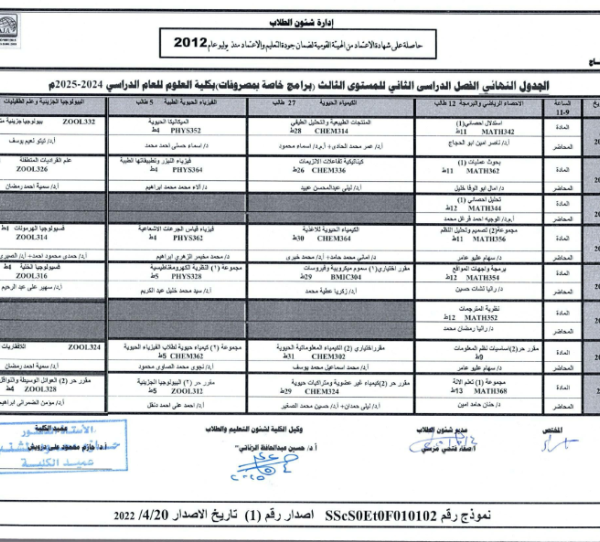 إدارة شئون الطلاب
حاصلة على شهادة الاعتماد من الهيئة القومية لضمان جودة التعليم والاعتماد منذ يوليو عام 2012
الجدول النهائي الفصل الدراسى الثاني للمستوى الثالث (برامج خاصة بمصروفات) بكلية العلوم للعام الدراسي 2024-2025م
الساعة 9-11
الاحصاء الرياضي والبرمجة 12 طالب
الكيمياء الحيوية 27 طالب
الفيزياء الحيوية الطبية 5 طالب
البيولوجيا الجزيئية وعلم الطفيليات
المادة
استدلال احصائي(1) MATH342 11ط
المنتجات الطبيعية والتحليل الطيفي CHEM314 28ط
الميكانيكا الحيوية PHYS352 4ط
بيولوجيا جزيئية ZOOL332
المحاضر
أ.د/ ناصر امين ابو الحجاج
أ.د/ عمر محمد الحادى + أ.م.د/ اسماء محمود
د/ اسماء حسنى احمد محمد
المادة
بحوث عمليات (1) MATH362 11ط
كيناتيكية تفاعلات الانزيمات CHEM336 26ط
فيزياء الليزر وتطبيقاتها الطبية PHYS364 4ط
علم القرديات المتطفلة ZOOL326
المحاضر
د/ امال ابو الوفا خليل
أ.د/ ليلى عبدالمحسن عبيد
د/ آلاء محمد محمد ابراهيم
أ.د/ سمية احمد رمضان
المادة
تحليل احصائي (1) MATH344 12ط
المحاضر
المادة
مجموعة(2) تصميم وتحليل النظم MATH356 11ط
الكيمياء الحيوية للاغذية CHEM364 30ط
فيزياء قياس الجرعات الاشعاعية PHYS362 4ط
فسيولوجيا الهرمونات ZOOL314 4ط
المحاضر
د/ سهام عليو عامر
د/ اماني محمد حامد + أ.د/ محمد خيرى
د/ محمد مخيمر الزهري ابراهيم
المادة
برمجة واجهات المواقع MATH354 12ط
مقرر اختياري(1) سموم ميكروبية وفيروسات BMIC304 29ط
مجموعة (1) النظرية الكهرومغناطيسية PHYS328 5ط
فسيولوجيا الخلية ZOOL316 4ط
المحاضر
د/ رانيا نشات حسين
أ.د/ زكريا عطية محمد
أ.د/ سيد محمد خليل عبد الكريم
أ.د/ سهير على عبد الرحيم
المادة
نظرية المترجمات MATH352 12ط
المحاضر
د/ رانيا رمضان محمد
المادة
مقرر حر(2)اساسيات نظم المعلومات 0ط
مقرراختياري (1) الكيمياء المعلوماتية الحيوية CHEM302 31ط
مجموعة (1) كيمياء حيوية لطلاب الفيزياء الحيوية CHEM362 5ط
اللافقاريات ZOOL324
المحاضر
د/ سهام عليو عامر
أ.د/ محمد اسماعيل محمد يوسف
أ.د/ نجوى محمد الصاوى محمود
أ.د/ سمية احمد رمضان
المادة
مجموعة (1) تعليم الالة MATH368 13ط
مقرر حر(2)كيمياء غير عضوية ومتراكبات حيوية CHEM324 29ط
مقرر حر (2) البيولوجيا الجزيئية ZOOL312 5ط
مقرر حر (2) العوائل الوسيطة والنواقل ZOOL328 4ط
المحاضر
د/ حنان حامد امين
أ.د/ ليلى حمدان+ أ.د/ حسين محمد الصغير
أ.د/ احمد على احمد دنقل
المختص
مدير شئون الطلاب
وكيل الكلية لشئون التعليم والطلاب
عميد الكلية
أ.د/ حازم محمود على درويش
عميد الكلية
نموذج رقم SScS0Et0F010102 اصدار رقم (1) تاريخ الاصدار 2022 /4/20